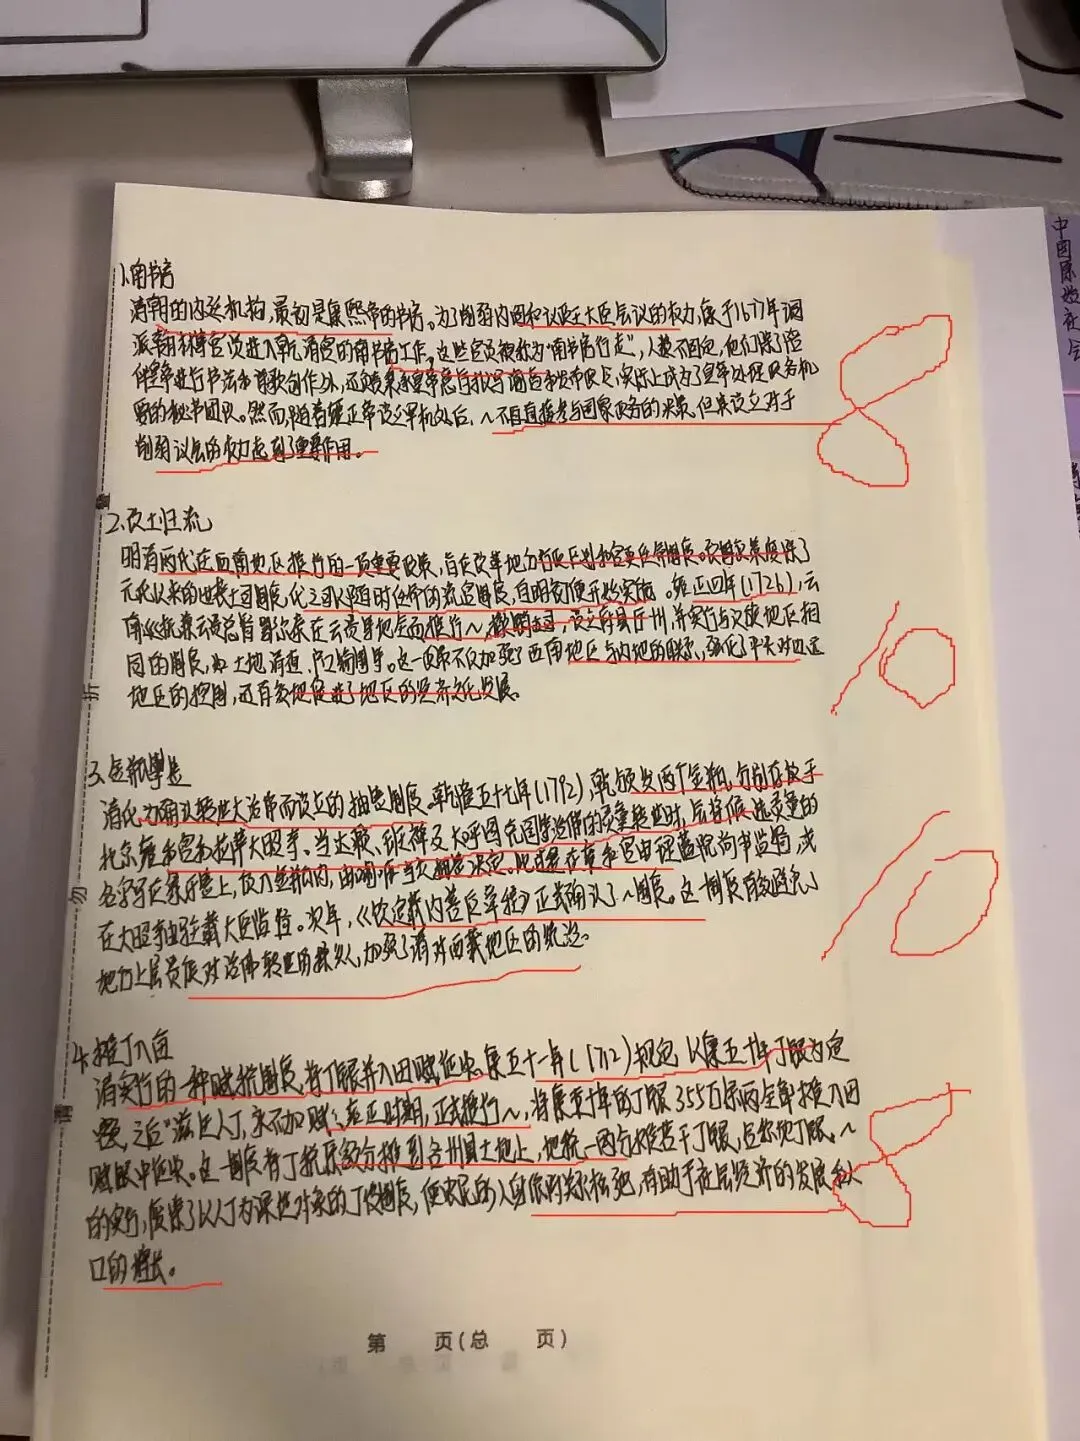 1.南书房
清朝的内廷机构,最初是康熙帝的书房。为了削弱内阁和议政王大臣会议的权力,康于1677年调
派翰林等官员进入乾清宫的南书房工作。这些官员被称为“南书房行走”,人数不固定,他们除了陪
伴皇帝进行书法和诗歌创作外,还秉承皇帝意旨拟写谕旨和发布政令,实际上成为了皇帝处理政务机
要的秘书团队。然而,随着雍正帝设立军机处后,~不再直接参与国家政务的决策,但其设立对于
削弱议会的权力起到了重要作用。
2.改土归流
明清两代在西南地区推行的一项重要政策,旨在改革地方
元代以来的世袭土司制度,代之以有任期的流官制度,自明初便开始实施。雍正四年(1726),云
南巡抚兼云贵总督鄂尔泰在云贵等地全面推行~,撤销土司,设立府县厅州,并实行与汉族地区相
同的制度,如土地清查、户口编制等。这一政策不仅加强了西南地区与内地的联系,强化了中央对边远
地区的控制,还有效地促进了地区的经济文化发展。
3.金瓶掣签
清代为确认转世大活佛而设立的抽签制度。乾隆五十七年(1792),乾颁发两个金瓶,分别存放于
北京雍和宫和拉萨大昭寺。当达赖、班禅及大呼图克图等活佛的灵童转世时,会将候选灵童的
名字写在象牙签上,放入金瓶内,由喇嘛当众抽签决定。此过程在雍和宫由理藩院尚书监督,或
在大昭寺由驻藏大臣监督。次年,《钦定藏内善后章程》正式确认了~制度。这一制度有效避免了
地方上层贵族对活佛转世的操纵,加强了清对西藏地区的统治。
4.摊丁入亩
清实行的一种赋税制度,将丁银并入田赋征收。康五十一年(1712)规定以康五十年丁银为定
额,之后“滋生人丁,永不加赋”。在正时期,正式推行~,将康五十年的丁银355万余两全部摊入田
赋银中征收。这一制度将丁税原额分摊到各州县土地上,地税一两分摊若干丁银,合称地丁银。~
的实行,废除了以人丁为课税对象的丁役制度,使农民的人身依附关系松弛,有助于社会经济的发展和人
口的增长。
第 页(总 页)
请
勿
折
叠
中国原始社会